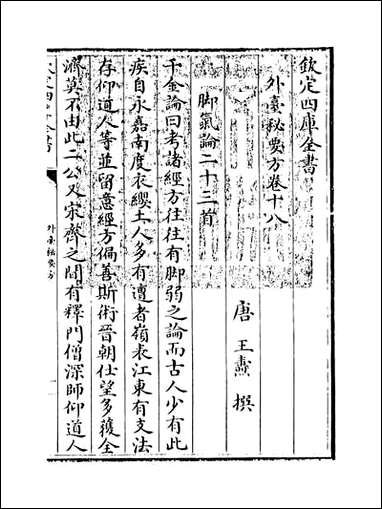 欽定四庫全書
外臺秘要方卷十八
唐 王燾 撰
脚氣論二十三首
千金論曰考諸經方往往有脚弱之論而古人少有此
疾自永嘉南度衣纓士人多有遭者嶺表江東有支法
存仰道人等並留意經方偏善斯術晉朝仕望多獲全
濟莫不由此二公又宋齊之間有釋門僧深師仰道人
外臺秘要方